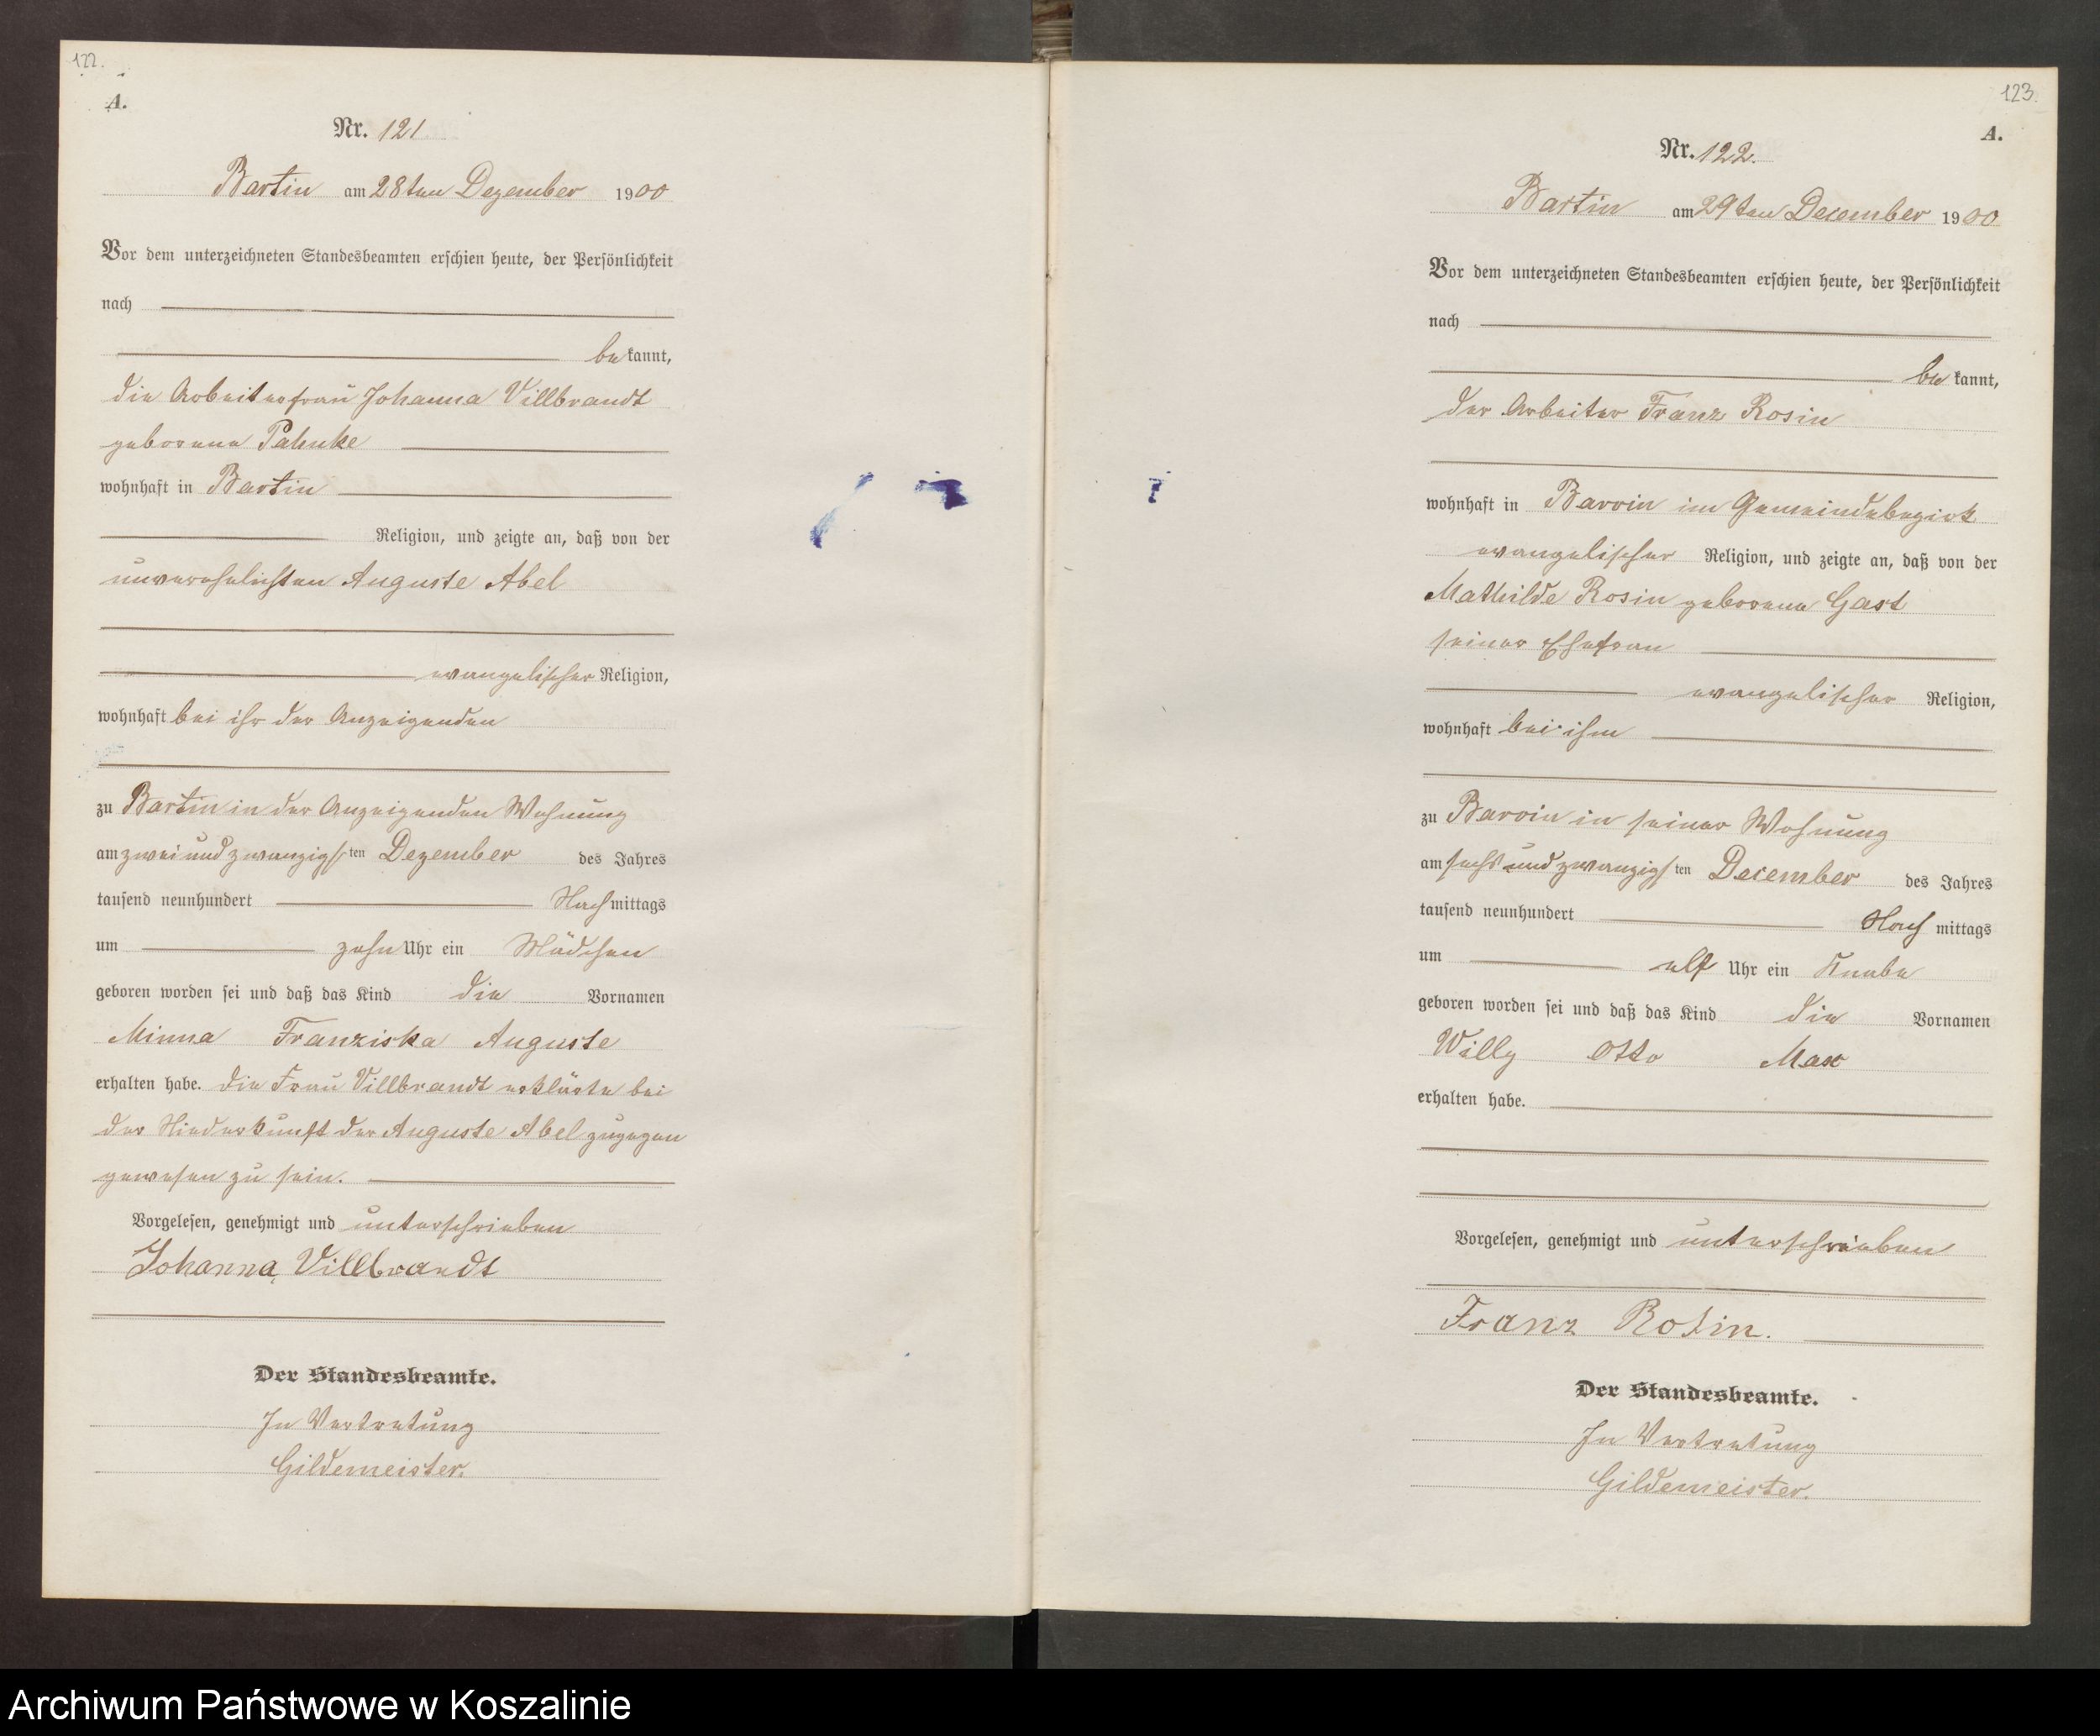 122.
A.
Nr. 121
Bartin am 28ten Dezember 1900
Vor dem unterzeichneten Standesbeamten erschien heute, der Persönlichkeit
nach
bekannt,
die Arbeiterfrau Johanna Villbrandt
geborene Pahnke
wohnhaft in Bartin
Religion, und zeigte an, daß von der
unverehelichten Auguste Abel
evangelischer Religion,
wohnhaft bei ihr der Anzeigenden
zu Bartin in der Anzeigenden Wohnung
am zwei und zwanzigsten Dezember des Jahres
tausend neunhundert Nachmittags
um zehn Uhr ein Mädchen
geboren worden sei und daß das Kind die Vornamen
Minna Franziska Auguste
erhalten habe. Die Frau Villbrandt erklärte bei
der Niederkunft der Auguste Abel zugegen
gewesen zu sein.
Vorgelesen, genehmigt und unterschrieben
Johanna Villbrandt
Der Standesbeamte.
In Vertretung
Gildemeister.
123.
A.
Nr. 122.
Bartin am 29ten December 1900
Vor dem unterzeichneten Standesbeamten erschien heute, der Persönlichkeit
nach
bekannt,
der Arbeiter Franz Rosin
wohnhaft in Barvin im Gemeindebezirk
evangelischer Religion, und zeigte an, daß von der
Mathilde Rosin geborene Gast
seiner Ehefrau
evangelischer Religion,
wohnhaft bei ihm
zu Barvin in seiner Wohnung
am sechs und zwanzigsten December des Jahres
tausend neunhundert Nachmittags
um elf Uhr ein Knabe
geboren worden sei und daß das Kind die Vornamen
Willy Otto Max
erhalten habe.
Vorgelesen, genehmigt und unterschrieben
Franz Rosin.
Der Standesbeamte.
In Vertretung
Gildemeister.
Archiwum Państwowe w Koszalinie